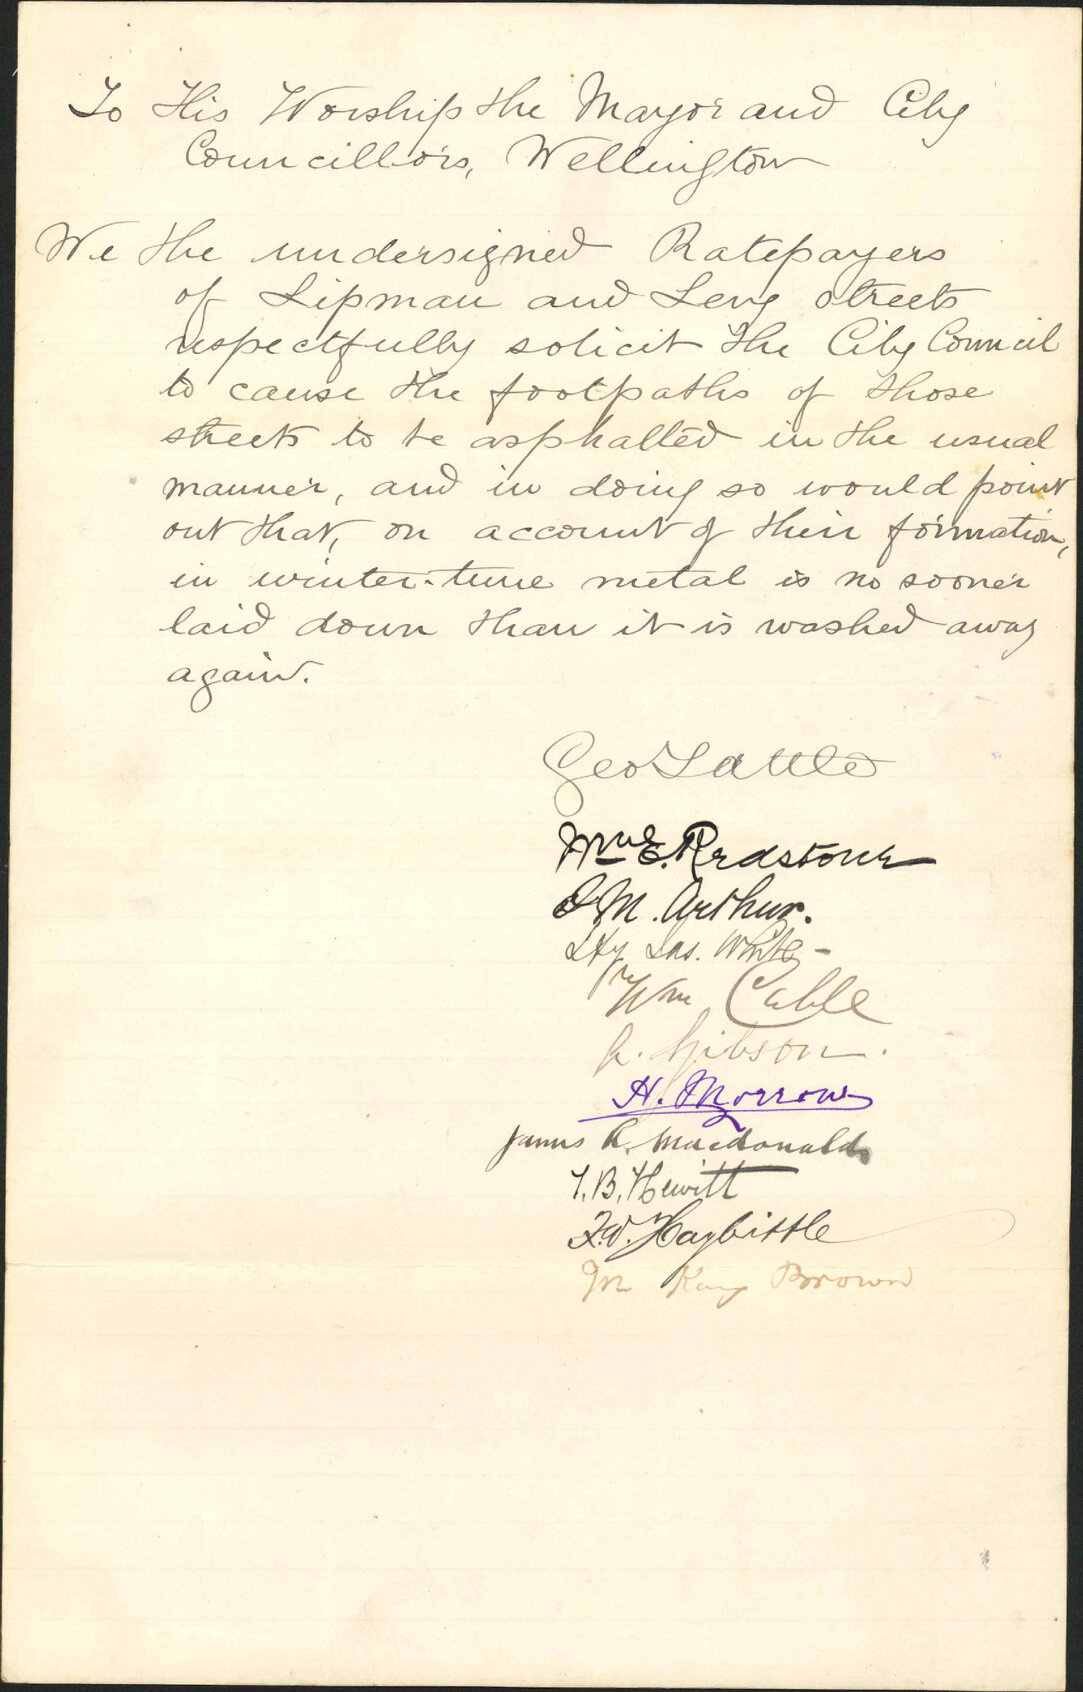 To His Worship the Mayor and City
Councillors, Wellington
We the undersigned Ratepayers
of Lipman and Levy streets
respectfully solicit the City Council
to cause the footpaths of those
streets to be asphalted in the usual
manner, and in doing so would point
out that, on account of their formation,
in winter-time metal is no sooner
laid down than it is washed away
again.
Geo
Redstone
M. Arthur.
White
Wm Cable
Gibson
H. Morrow
James A. Macdonald
T.B. Hewitt
F.W. Haybittle
King Brown